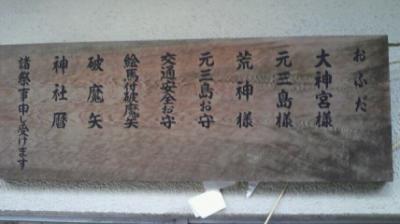 おふだ
大神宮様
元三島様
荒神様
元三島お守
交通安全お守
絵馬付破魔矢
破魔矢
神社暦
諸祭事申し受けます